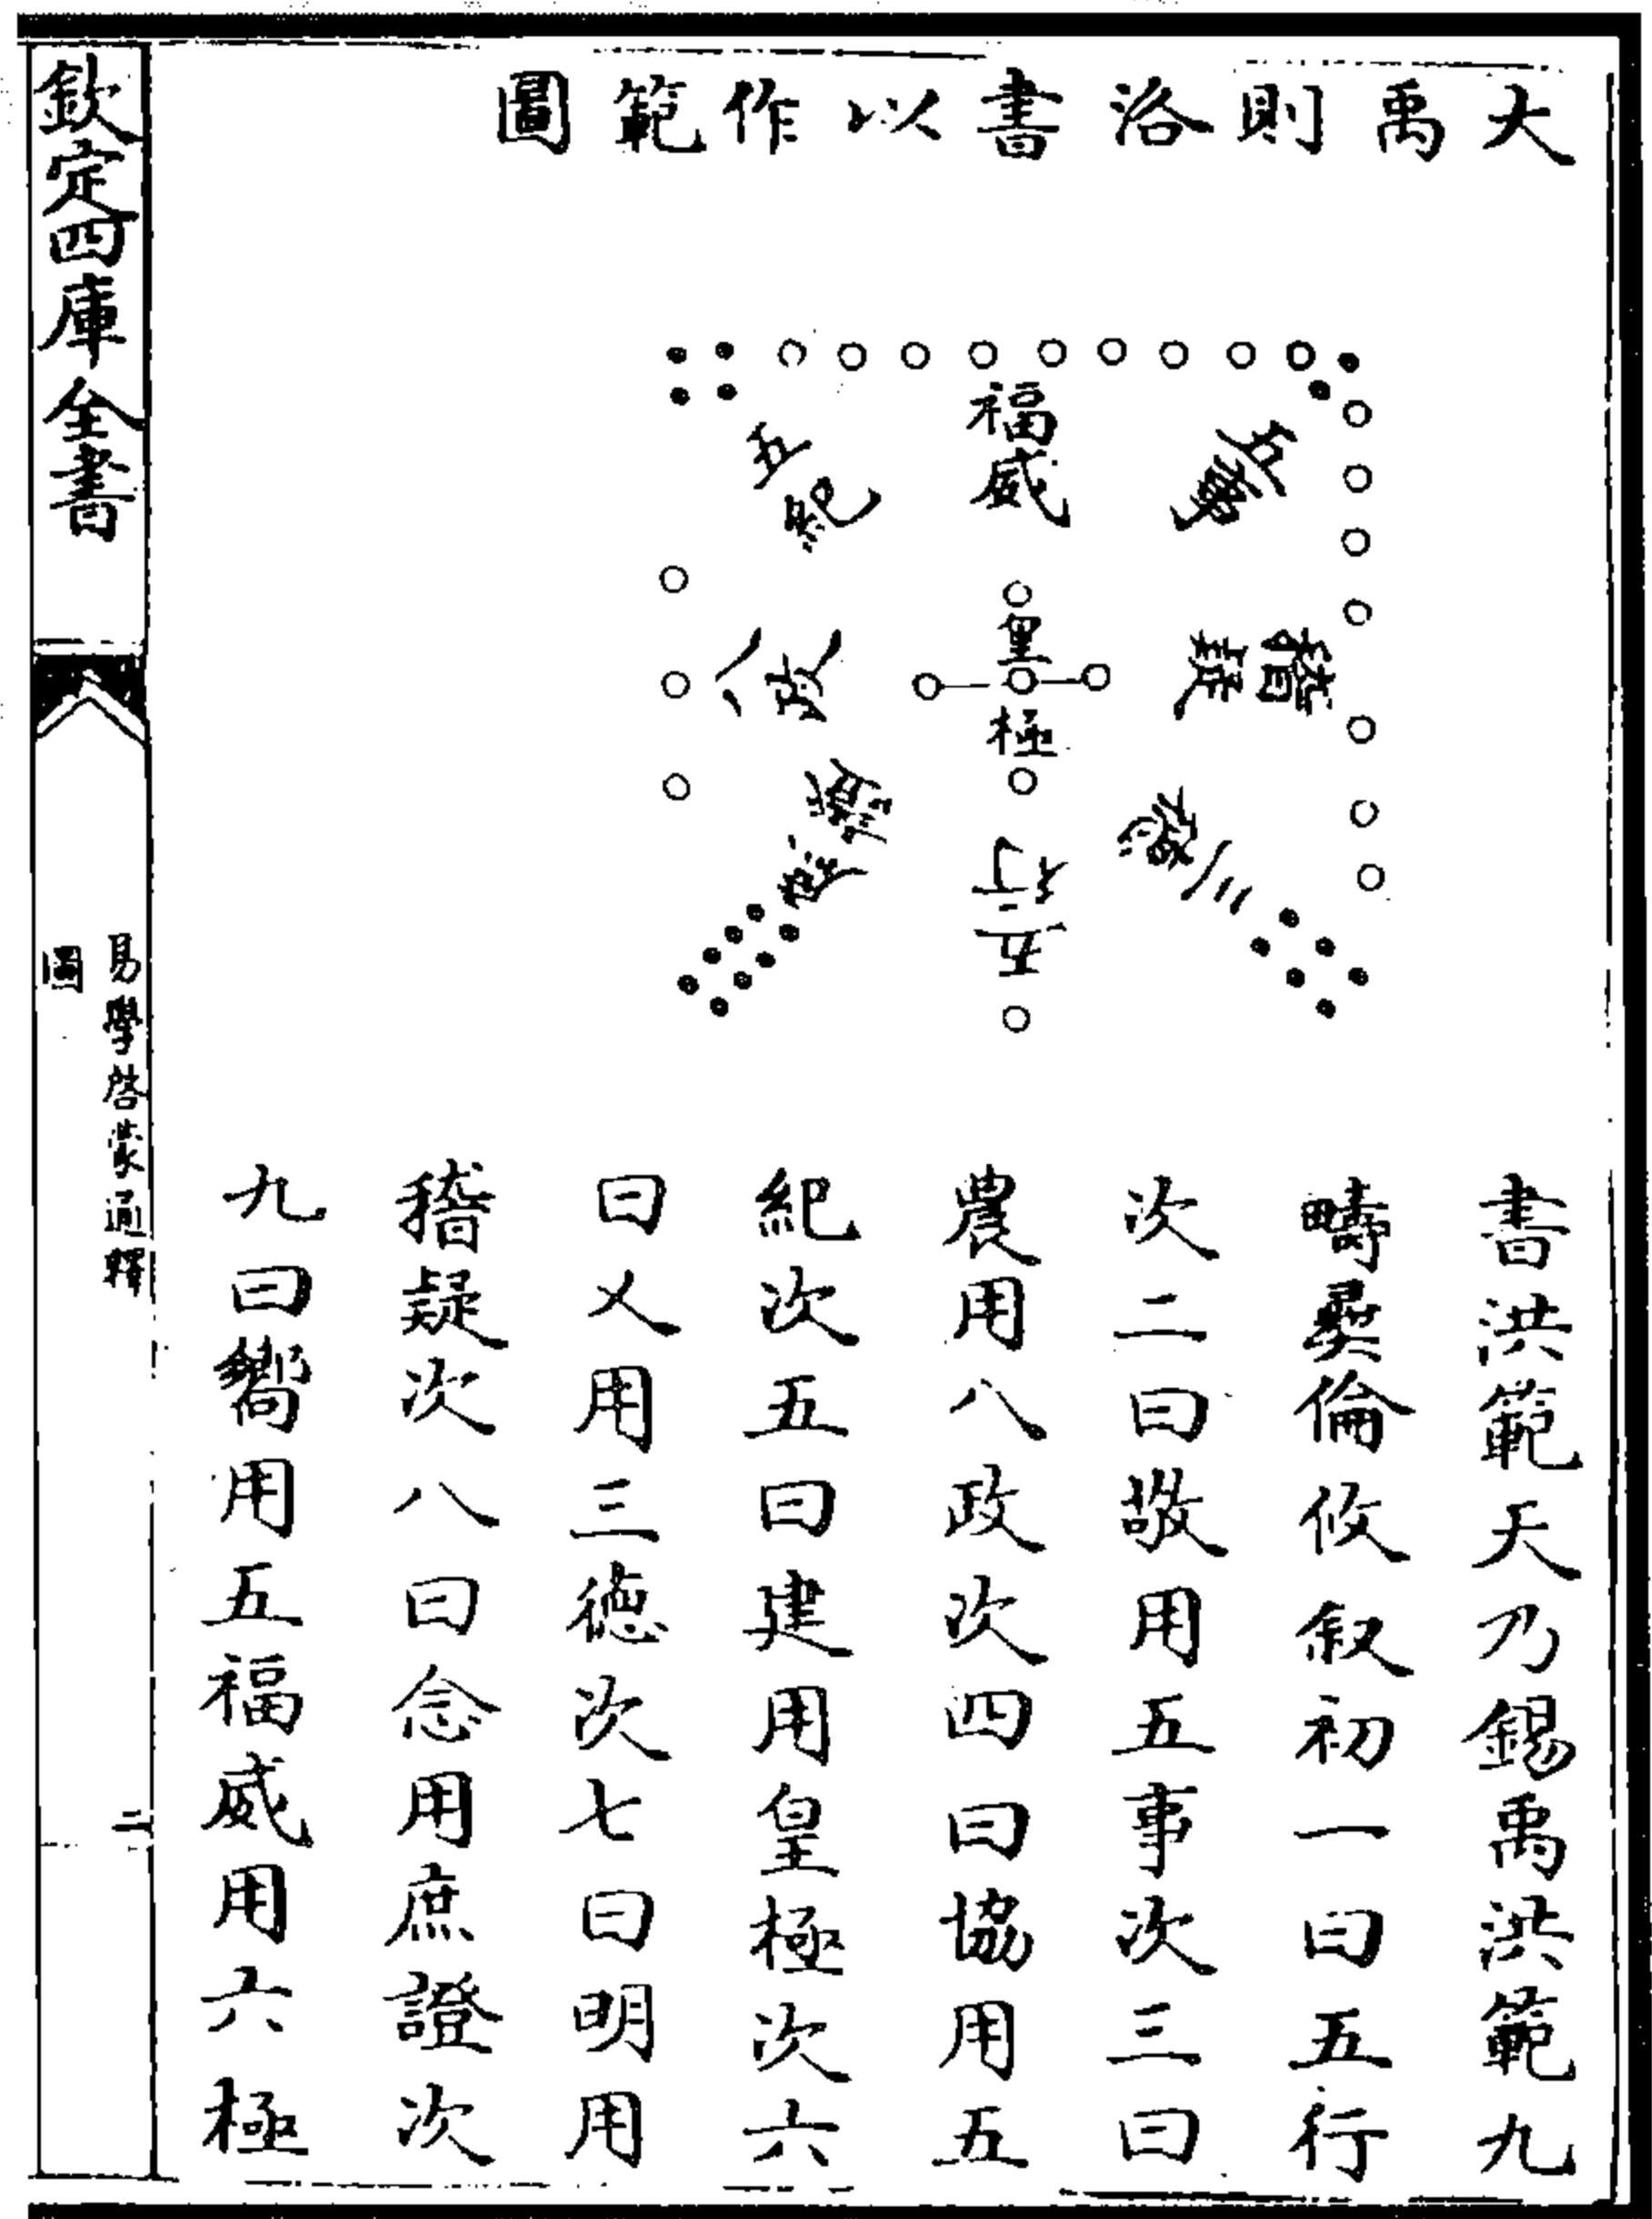 大禹則洛書以作範圖
五事
福威
五紀
稽疑
皇極
八政
三德
五行
庶證
書洪範天乃錫禹洪範九
疇彞倫攸叙初一曰五行
次二曰敬用五事次三曰
農用八政次四曰協用五
紀次五曰建用皇極次六
曰乂用三德次七曰明用
稽疑次八曰念用庶證次
九曰嚮用五福威用六極
欽定四庫全書
易學啓蒙通釋
圖
二